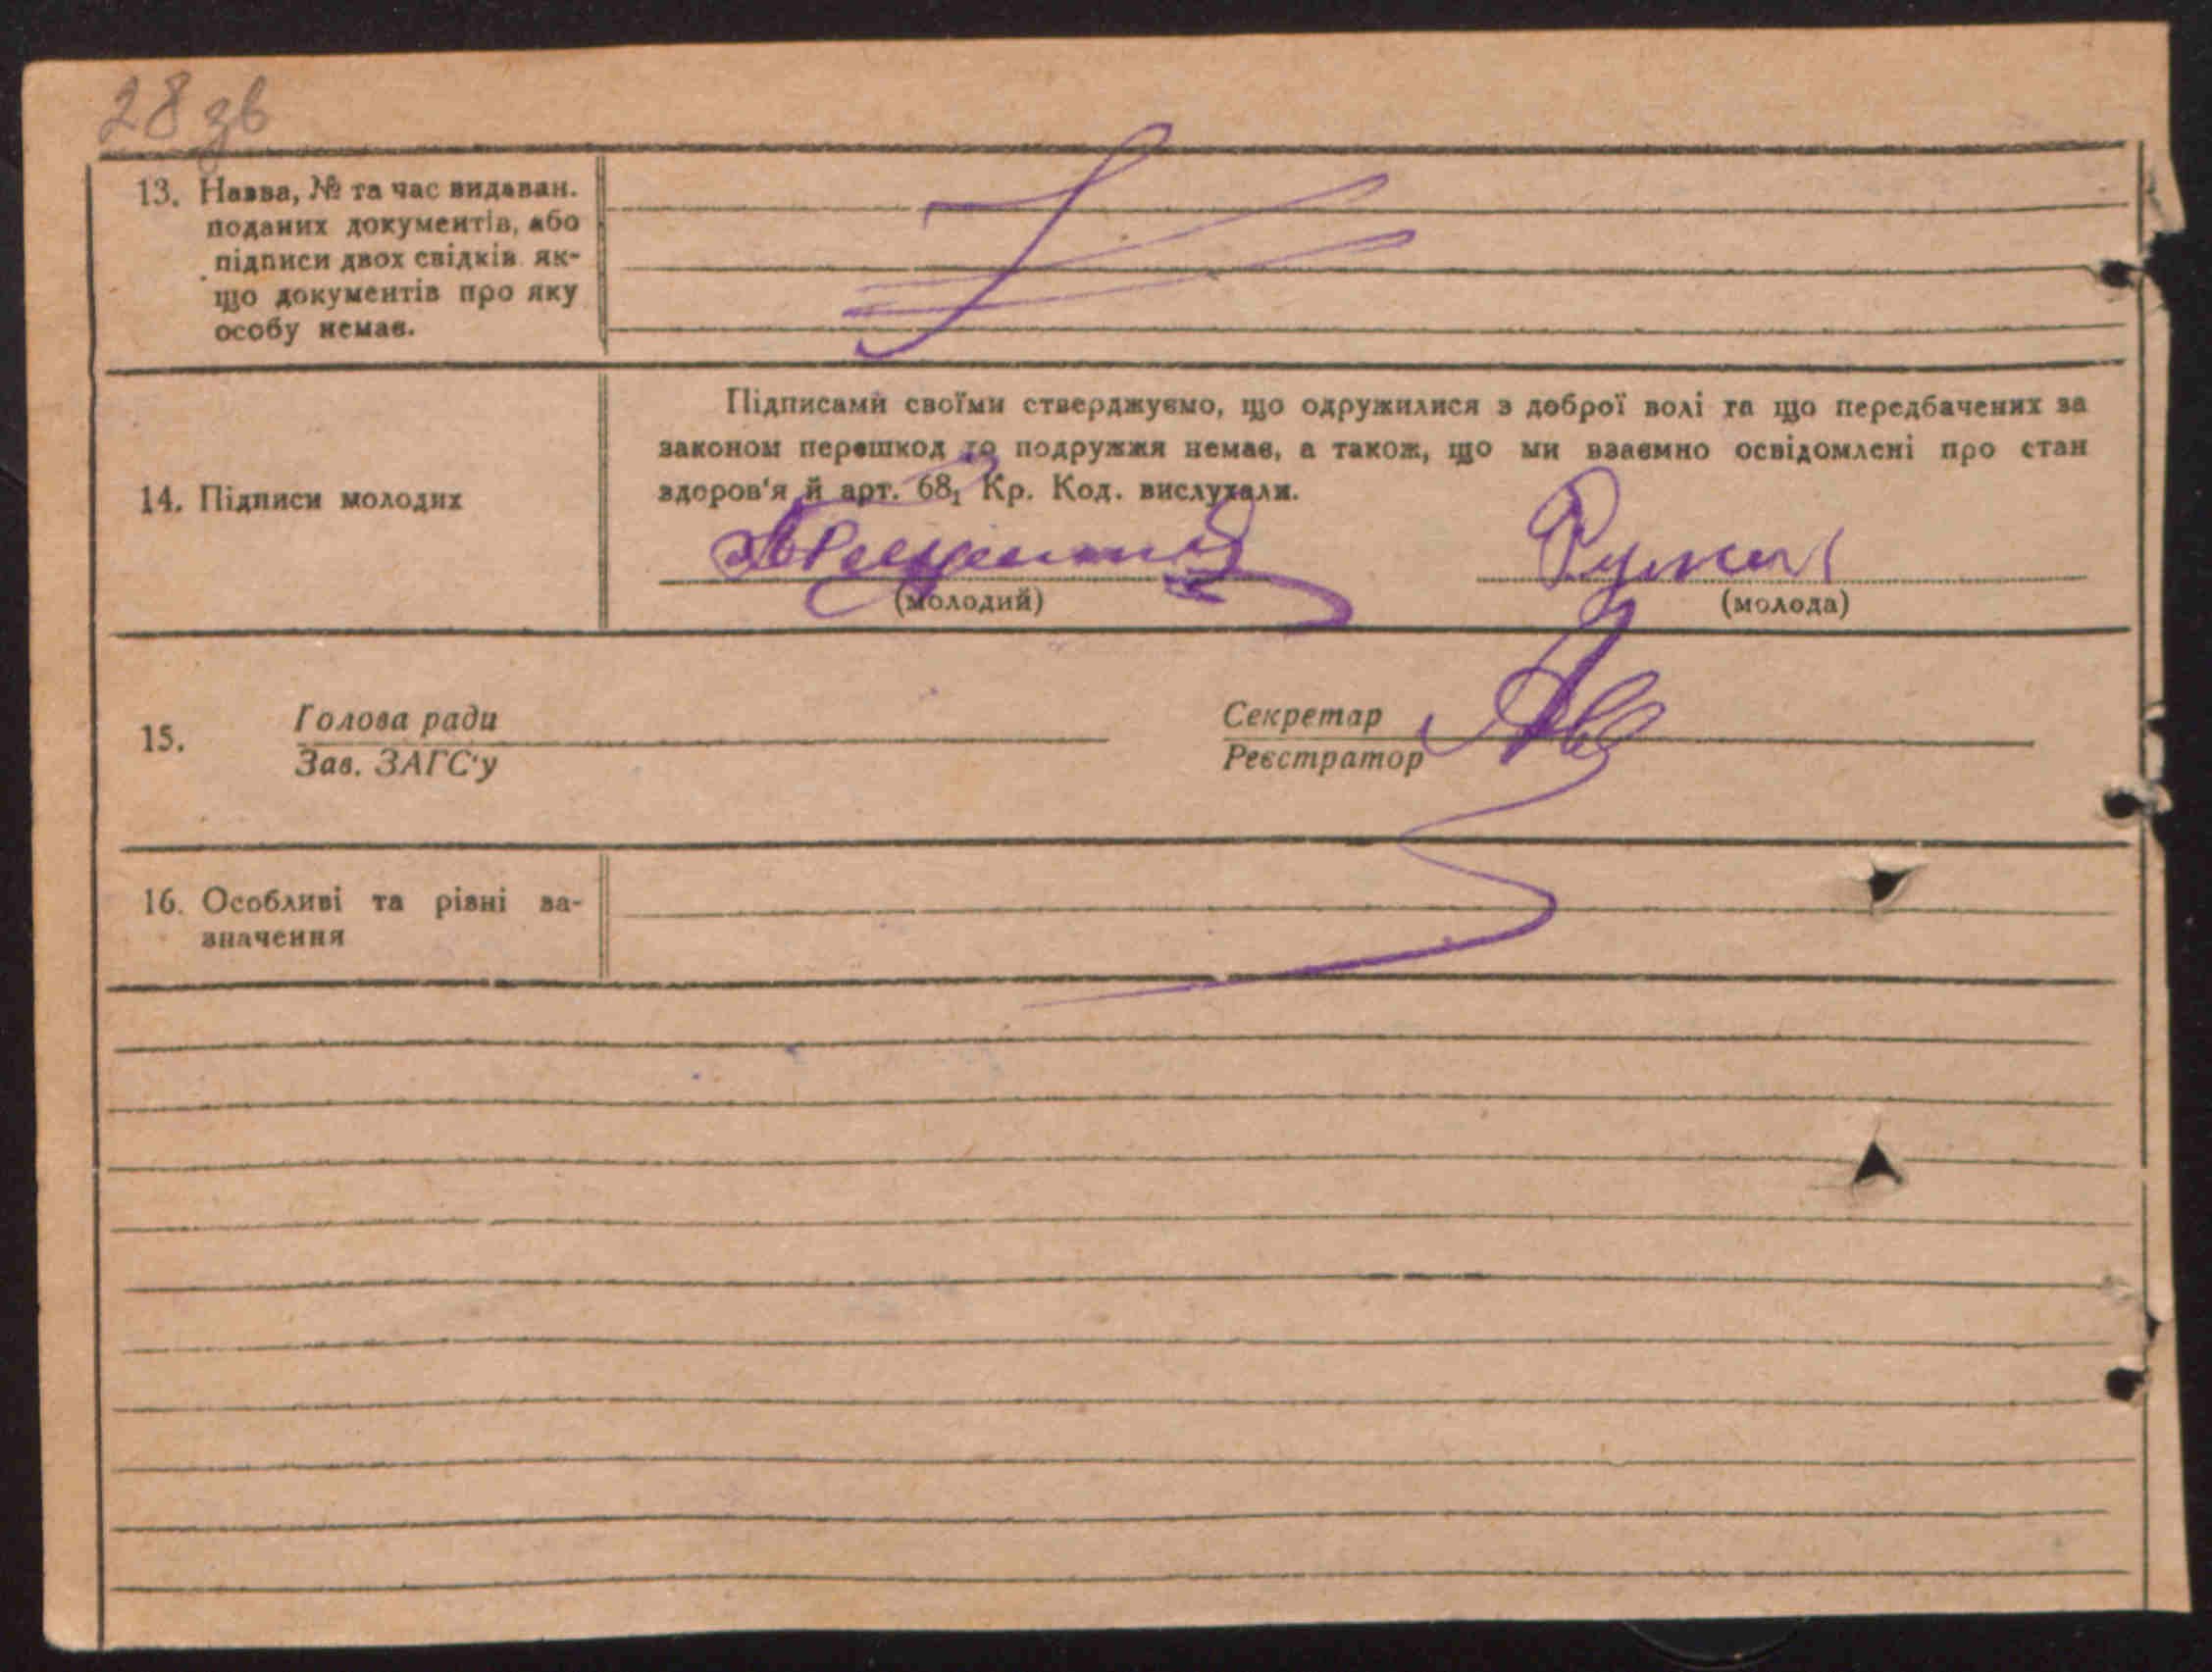 28 зв
13. Назва, № та час видаван.
поданих документів, або
підписи двох свідків як-
що документів про яку
особу немає.
Підписами своїми стверджуємо, що одружилися з доброї волі та що передбачених за
законом перешкод до подружжя немає, а також, що ми взаємно освідомлені про стан
здоров'я й арт. 68₁ Кр. Код. вислухали.
14. Підписи молодих
(молодий) (молода)
15. Голова ради Секретар
Зав. ЗАГС'у Реєстратор
16. Особливі та різні за-
значення